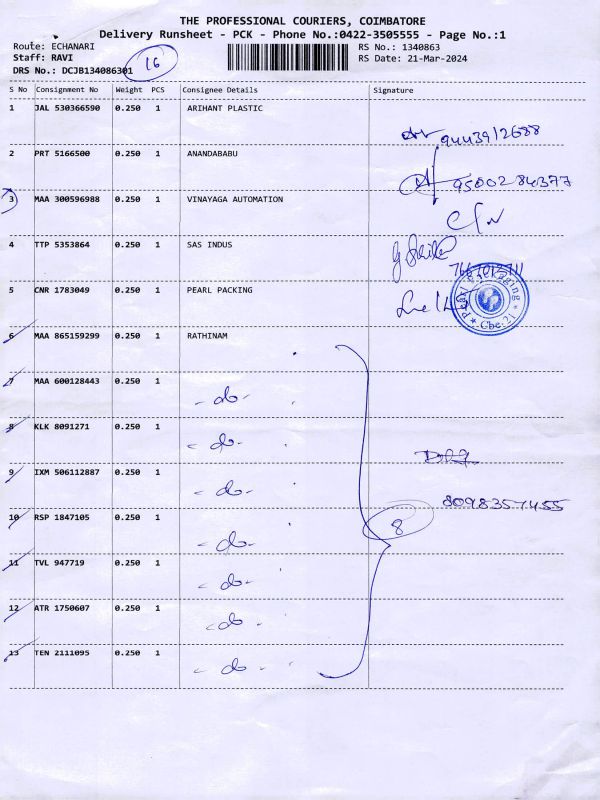 THE PROFESSIONAL COURIERS, COIMBATORE
Delivery Runsheet - PCK - Phone No.:0422-3505555 - Page No.:1
Route: ECHANARI
RS No.: 1340863
Staff: RAVI
16
RS Date: 21-Mar-2024
DRS No.: DCJB134086301
S No Consignment No Weight PCS Consignee Details Signature
1 JAL 530366590 0.250 1 ARIHANT PLASTIC
9443912688
2 PRT 5166500 0.250 1 ANANDABABU
9500284377
3 MAA 300596988 0.250 1 VINAYAGA AUTOMATION
4 TTP 5353864 0.250 1 SAS INDUS
5 CNR 1783049 0.250 1 PEARL PACKING
Pearl Packaging
Cbe-21
6 MAA 865159299 0.250 1 RATHINAM
7 MAA 600128443 0.250 1
- do -
8 KLK 8091271 0.250 1
- do -
9 IXM 506112887 0.250 1
- do -
8098357455
10 RSP 1847105 0.250 1
8
- do -
11 TVL 947719 0.250 1
- do -
12 ATR 1750607 0.250 1
- do -
13 TEN 2111095 0.250 1
- do -